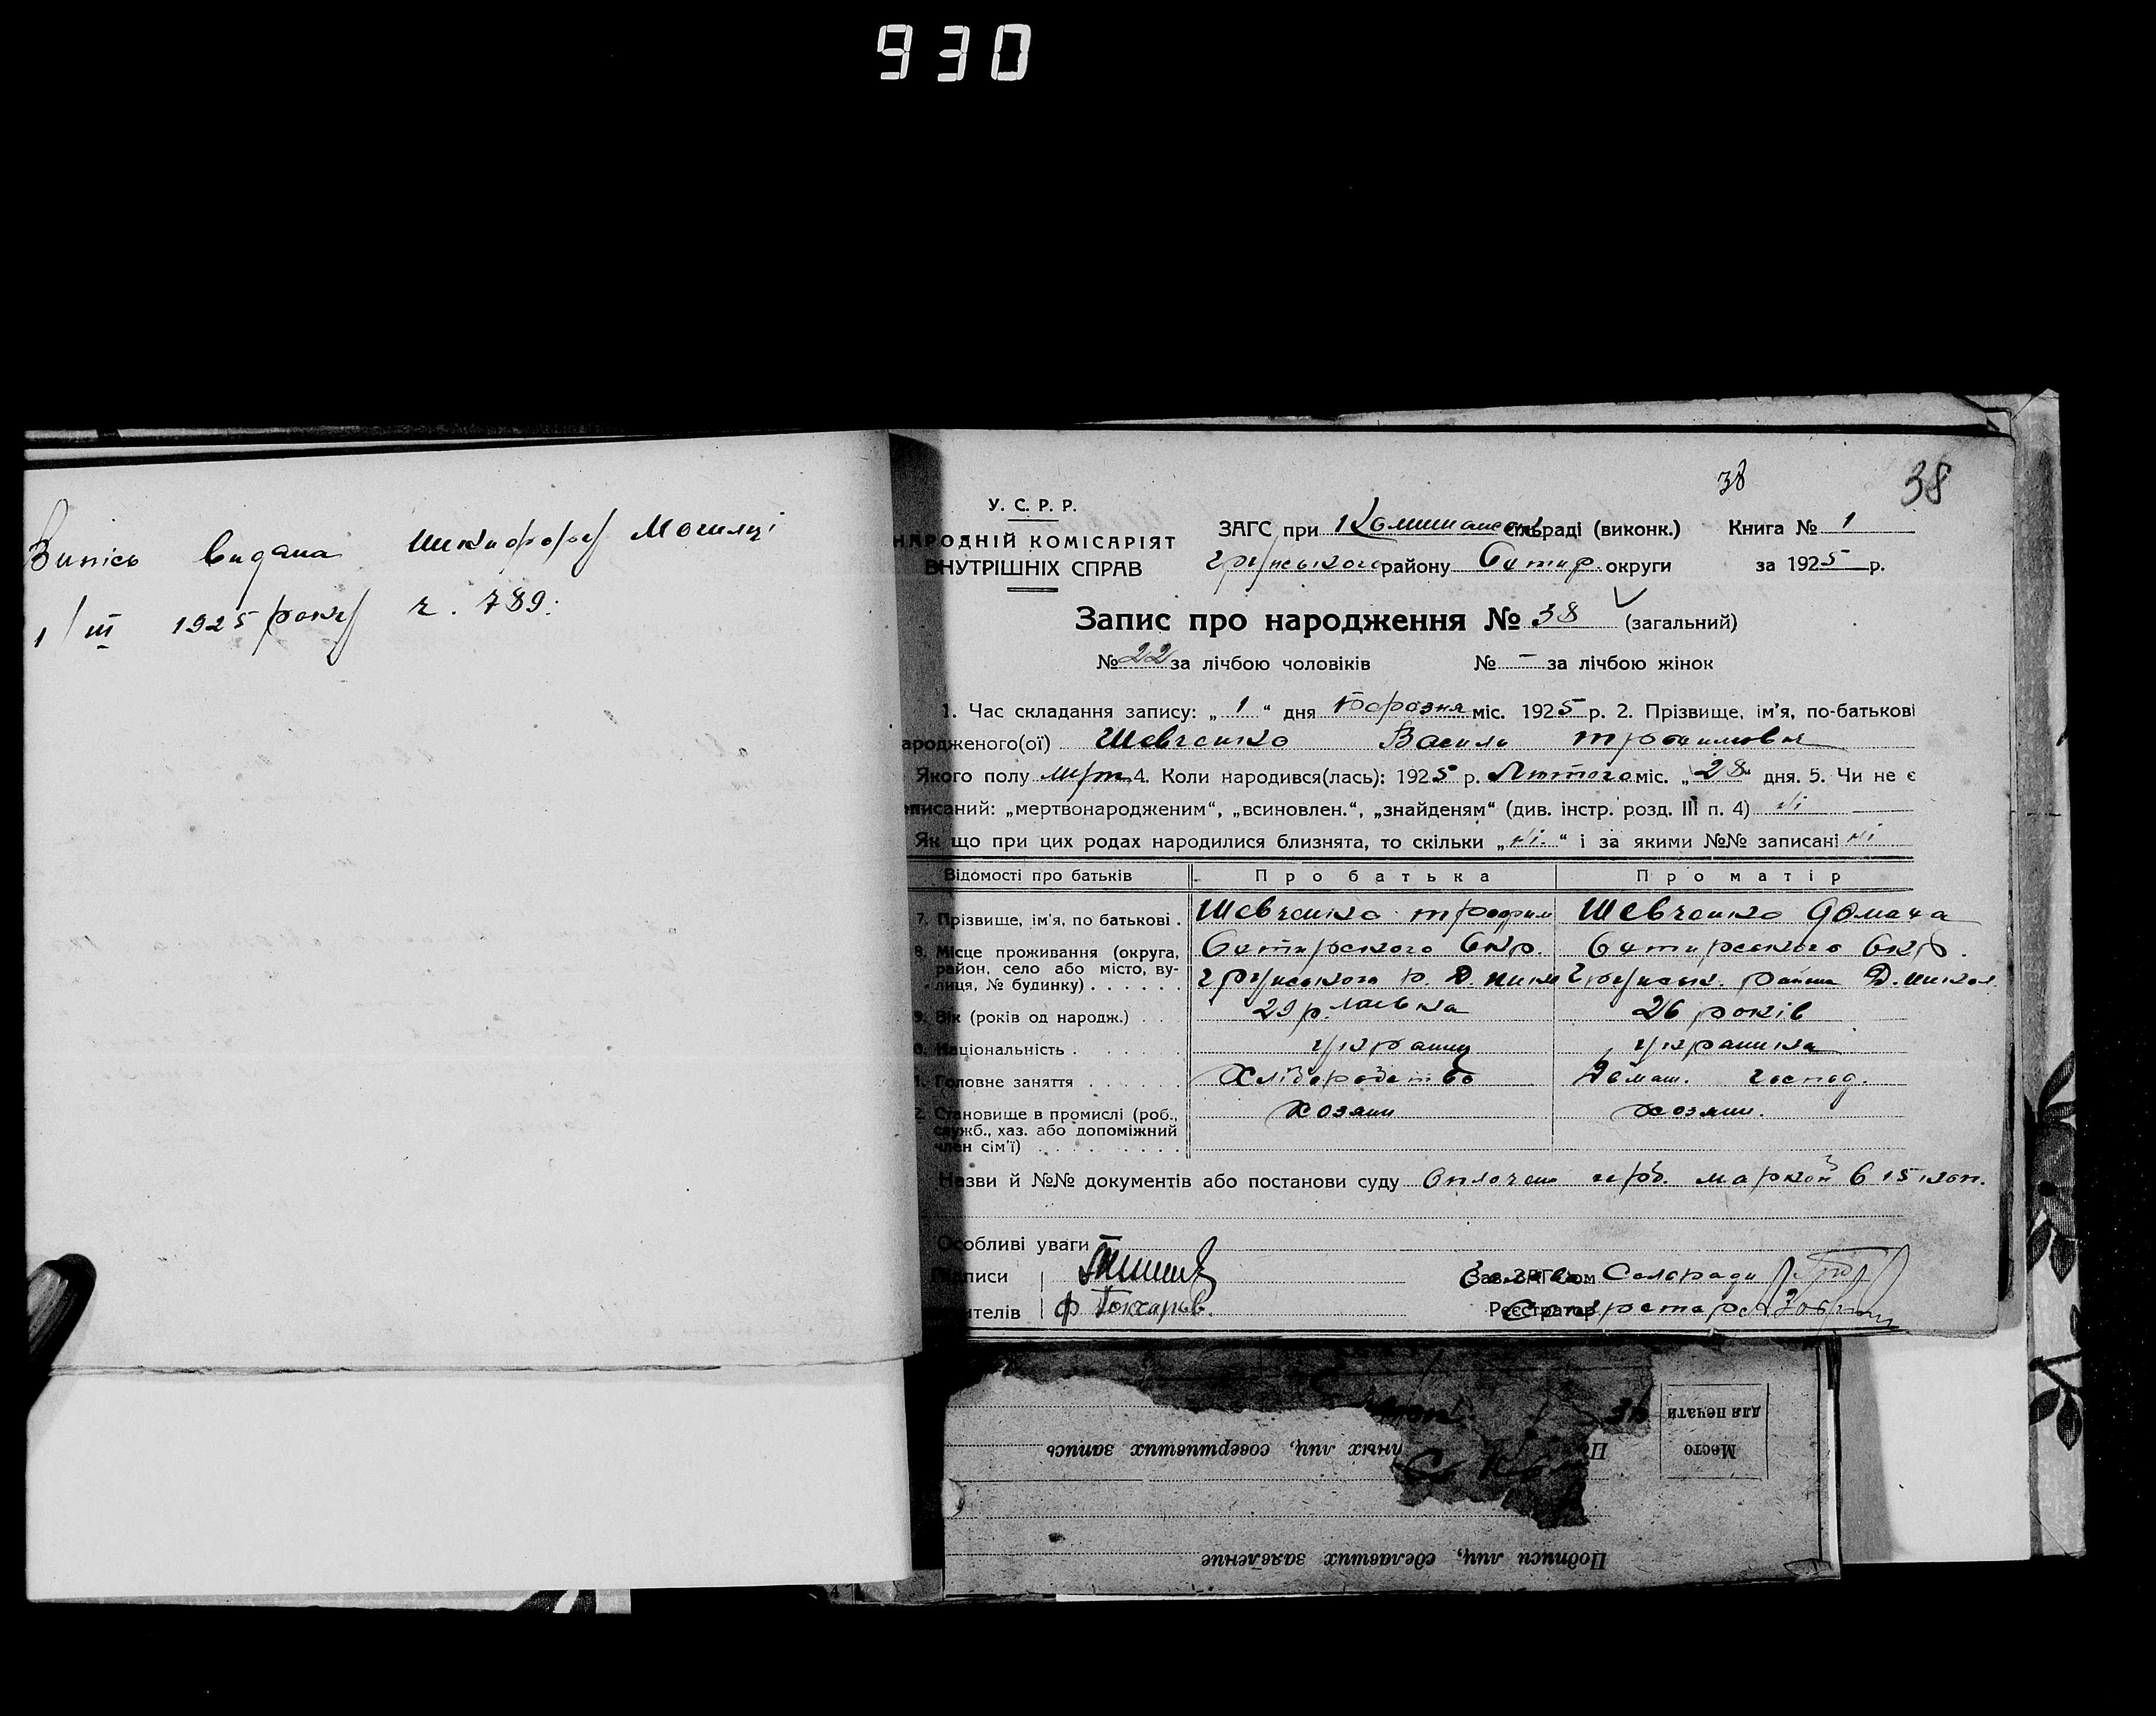 930
Випісь видана Никифору Могилці
1/III 1925 року ч. 789.
38
38
У. С. Р. Р.
НАРОДНІЙ КОМІСАРІЯТ
ВНУТРІШНІХ СПРАВ
ЗАГС при Комишанск сільраді (виконк.) Книга № 1
Грунського району Охтир. округи за 1925 р.
Запис про народження № 38 (загальний)
№ 22 за лічбою чоловіків № – за лічбою жінок
1. Час складання запису: „ 1 “ дня березня міс. 1925 р. 2. Прізвище, ім'я, по-батькові
народженого(ої) Шевченко Василь
Якого полу 4. Коли народився(лась): 1925 р. Лютого міс. „28“ дня. 5. Чи не є
описаний: „мертвонародженим“, „всиновлен.“, „знайденям“ (див. інстр. розд. III п. 4) ні
Як що при цих родах народилися близнята, то скільки „ні.“ і за якими №№ записані ні
Відомості про батьків Про батька Про матір
7. Прізвище, ім'я, по батькові . Шевченко Трофим Шевченко Домаха
8. Місце проживання (округа, район, село або місто, вулиця, № будинку) . . . . . . Охтирского Окр. Грунського р. Охтирського Окр. Грунськ. району
9. Вік (років од народж.) . . 29 р. 26 років
0. Національність . . . . . . . українц українка
1. Головне заняття . . . . . . Хліборобство Домаш. господ.
2. Становище в промислі (роб., служб., хаз. або допоміжний член сім'ї) . . . . . . . . . хозяин хозяин.
Назви й №№ документів або постанови суду Оплочено герб. маркой в 15 коп.
Особливі уваги
Підписи
Зав. ЗАГС'ом Голова Сельради
ителів
Реєстратор Секретар
Место
для печати
совершивших запись
Подписи лиц, сделавших заявление